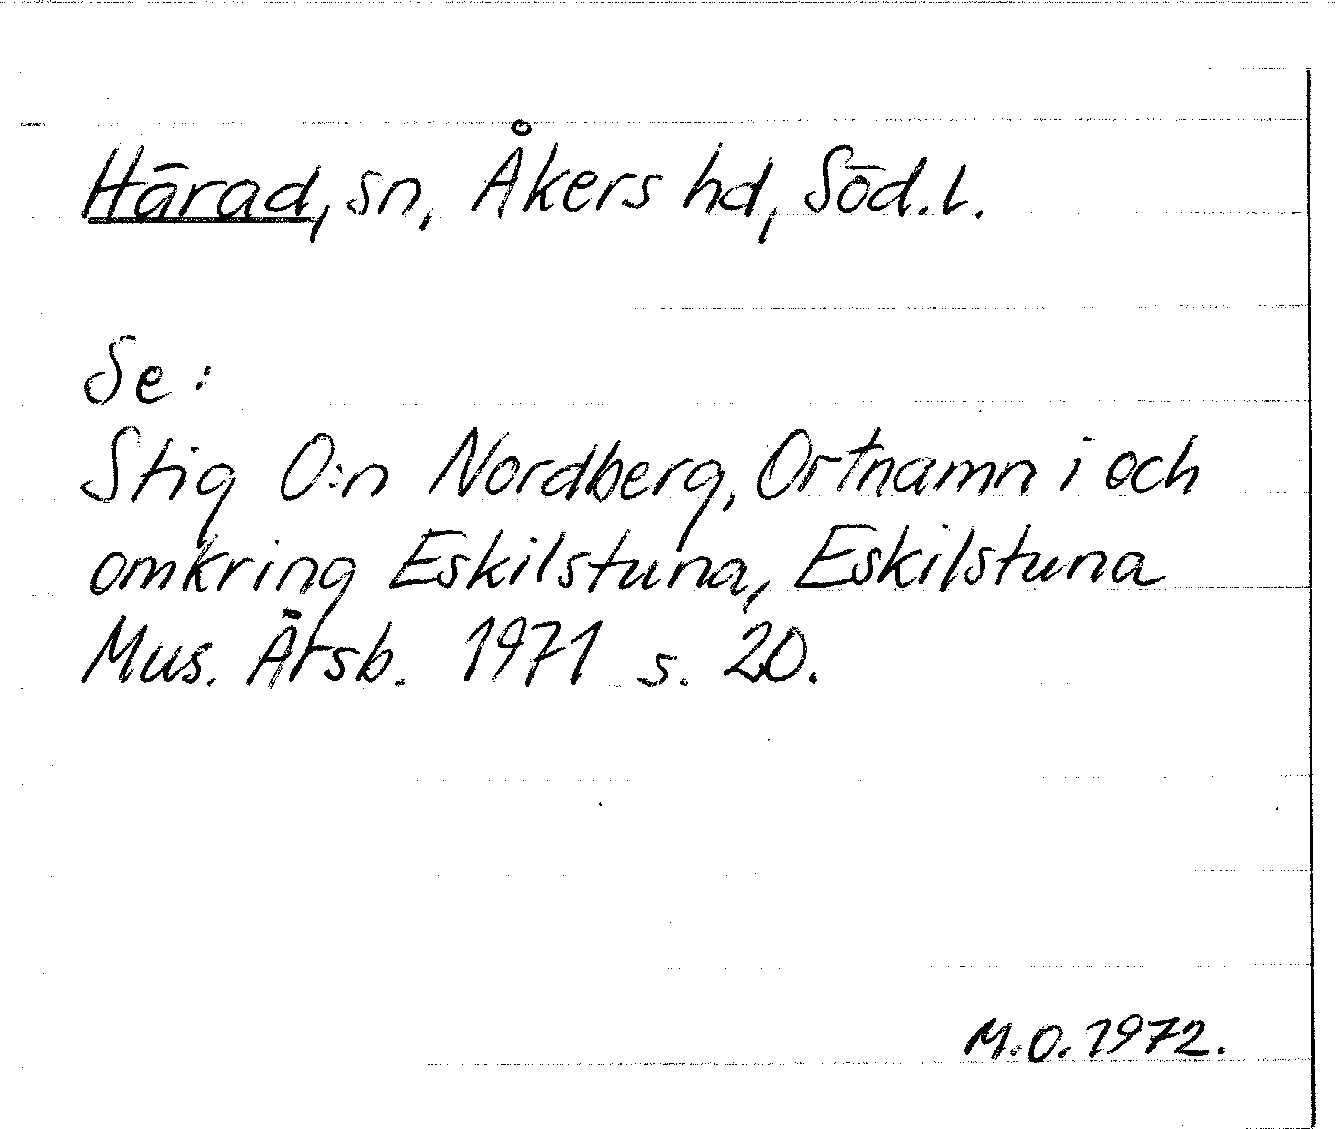 Härad, sn, Åkers hd, Söd.l.
Se:
Stig O:n Nordberg, Ortnamn i och
omkring Eskilstuna, Eskilstuna
Mus. Årsb. 1971 s. 20.
M.O. 1972.